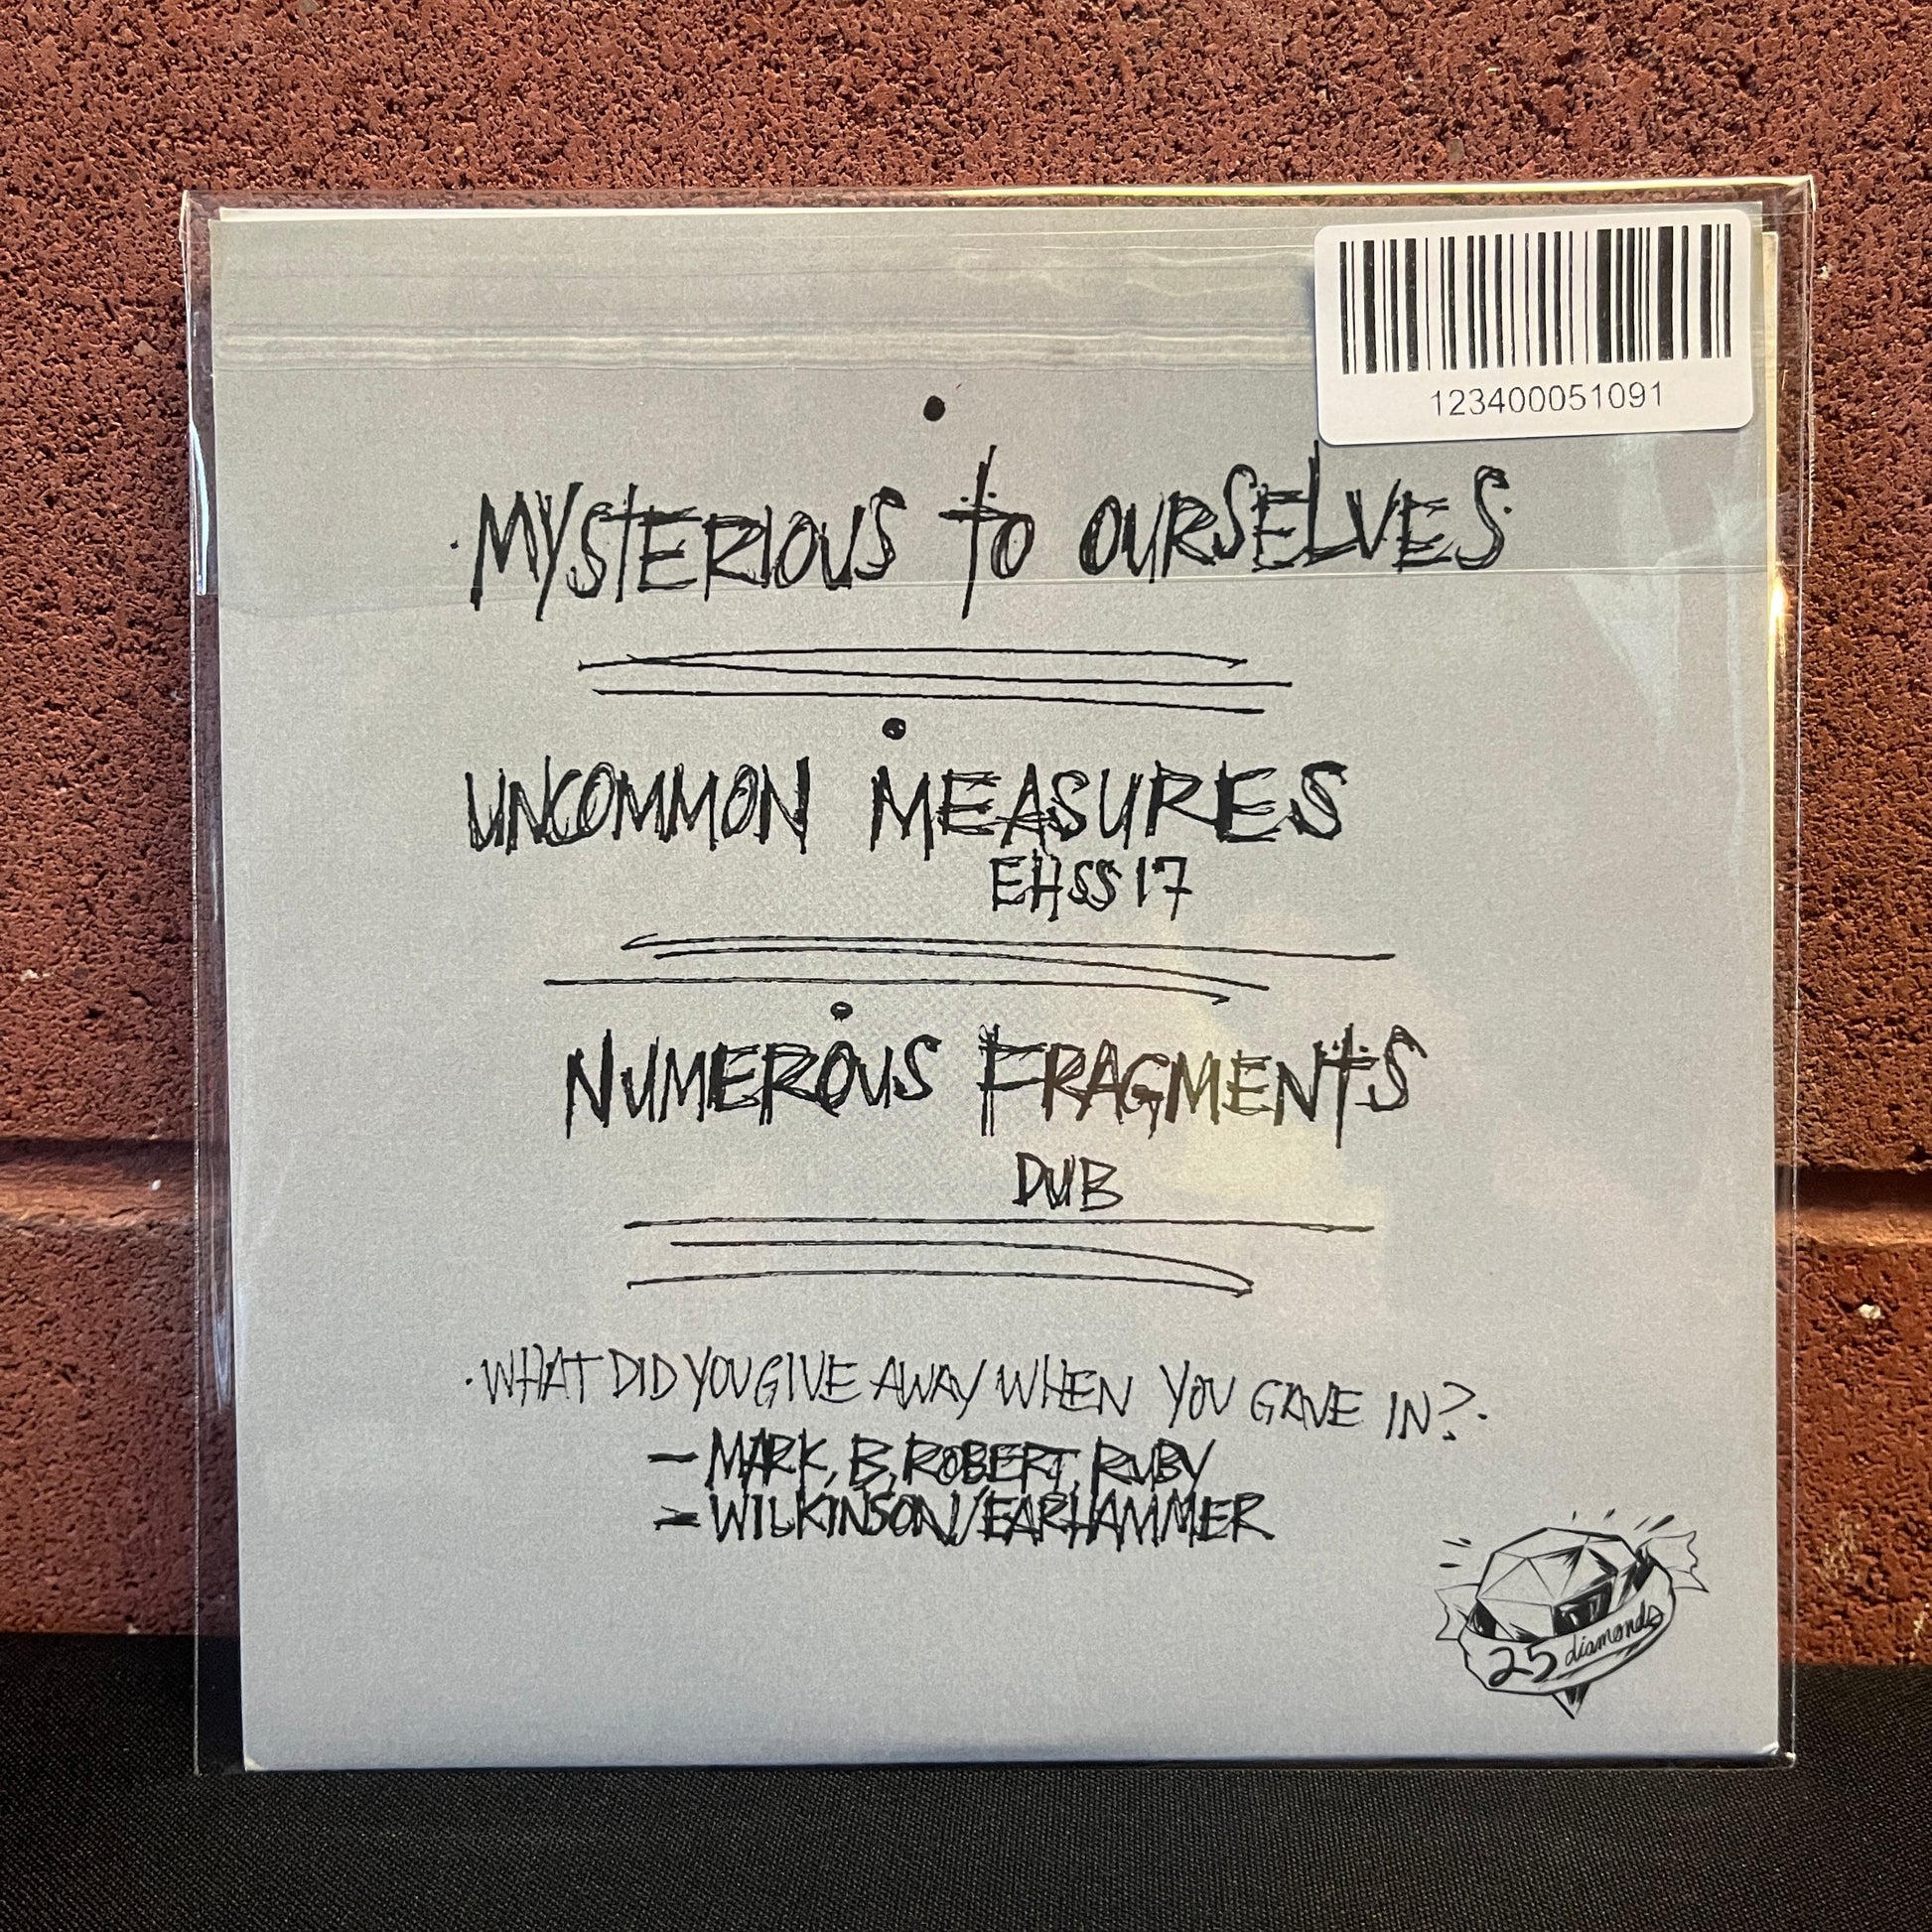 123400051091
MYSTERIOUS TO OURSELVES
UNCOMMON MEASURES
EHSS17
NUMEROUS FRAGMENTS
DUB
·WHAT DID YOU GIVE AWAY WHEN YOU GAVE IN?·
— MARK, B, ROBERT, RUBY
— WILKINSON/EARHAMMER
25 diamonds